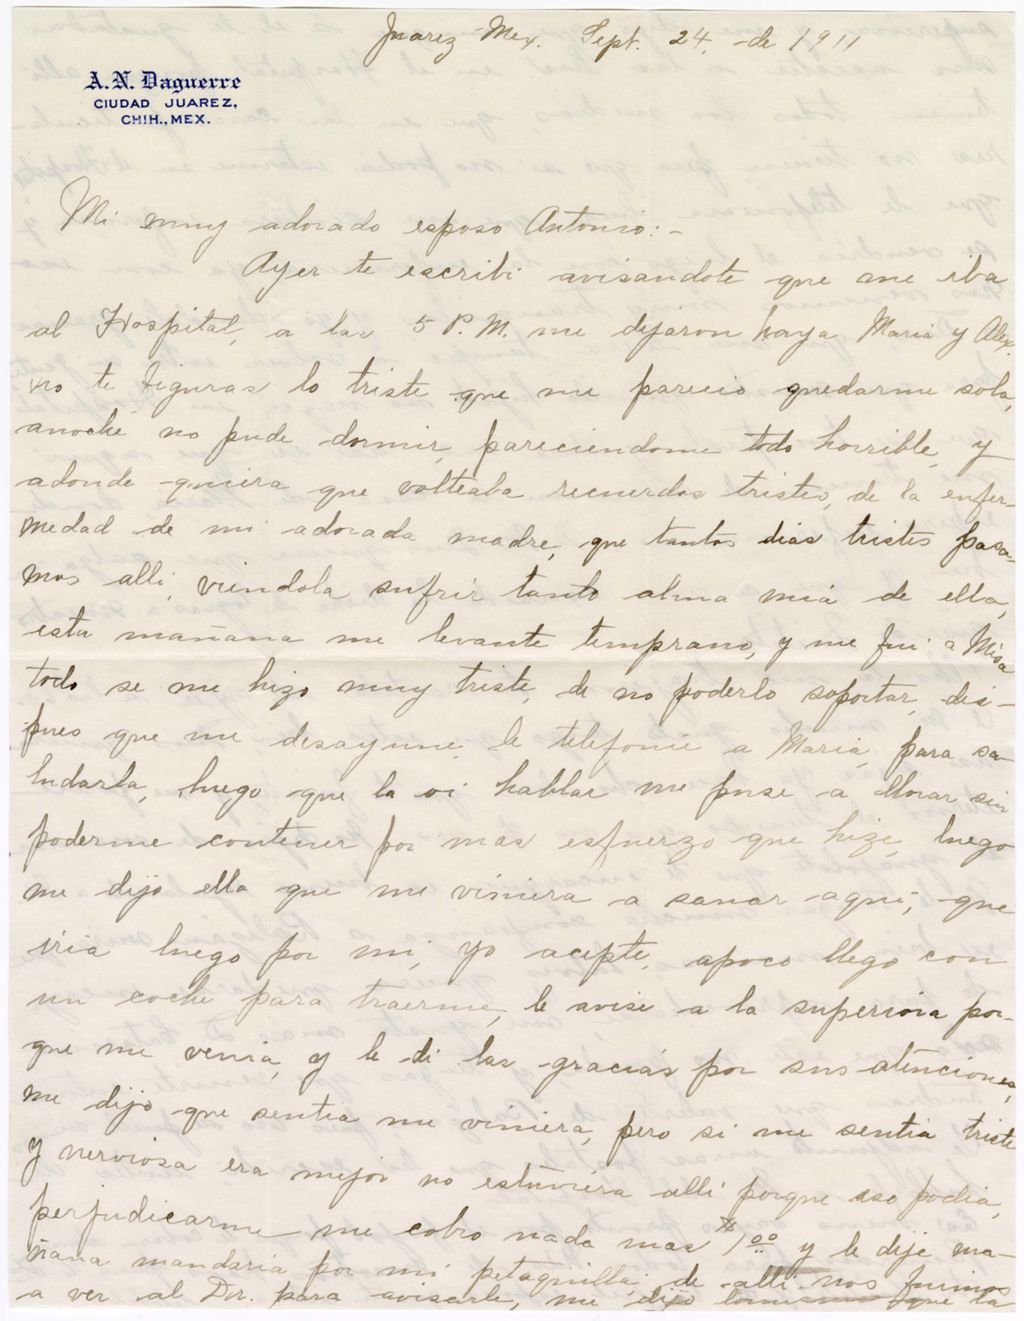 Juarez Mex. Sept. 24, -de 1911
A. N. Daguerre
CIUDAD JUAREZ,
CHIH., MEX.
Mi muy adorado esposo Antonio:-
Ayer te escribi avisandote que me iba
al Hospital, a las 5 P.M. me dijaron haya Maria y Alex.
no te figuras lo triste que me parecio quedarme sola,
anoche no pude dormir, pareciendome todo horrible, y
adonde quiera que volteaba recuerdos tristes, de la enfer-
medad de mi adorada madre, que tantos dias tristes pasa-
mos alli, viendola sufrir tanto alma mia de ella,
esta mañana me levante temprano, y me fui a Misa
todo se me hizo muy triste, de no poderlo soportar, des-
pues que me desayune, le telefonie a Maria, para sa-
ludarla, luego que la oi hablar me puse a llorar sin
poderme contener por mas esfuerzo que hize, luego
me dijo ella que me viniera a sanar aqui, que
iria luego por mi, yo acepte, apoco llego con
un coche para traerme, le avise a la superiora por-
que me venia, y le di las gracias por sus atenciones,
me dijo que sentia me viniera, pero si me sentia triste
y nerviosa era mejor no estuviera alli porque eso podia,
perjudicarme me cobro nada mas $1.00 y le dije ma-
ñana mandaria por mi petaquilla, de alli nos fuimos
a ver al Dor. para avisarle, me dijo lo mismo que la